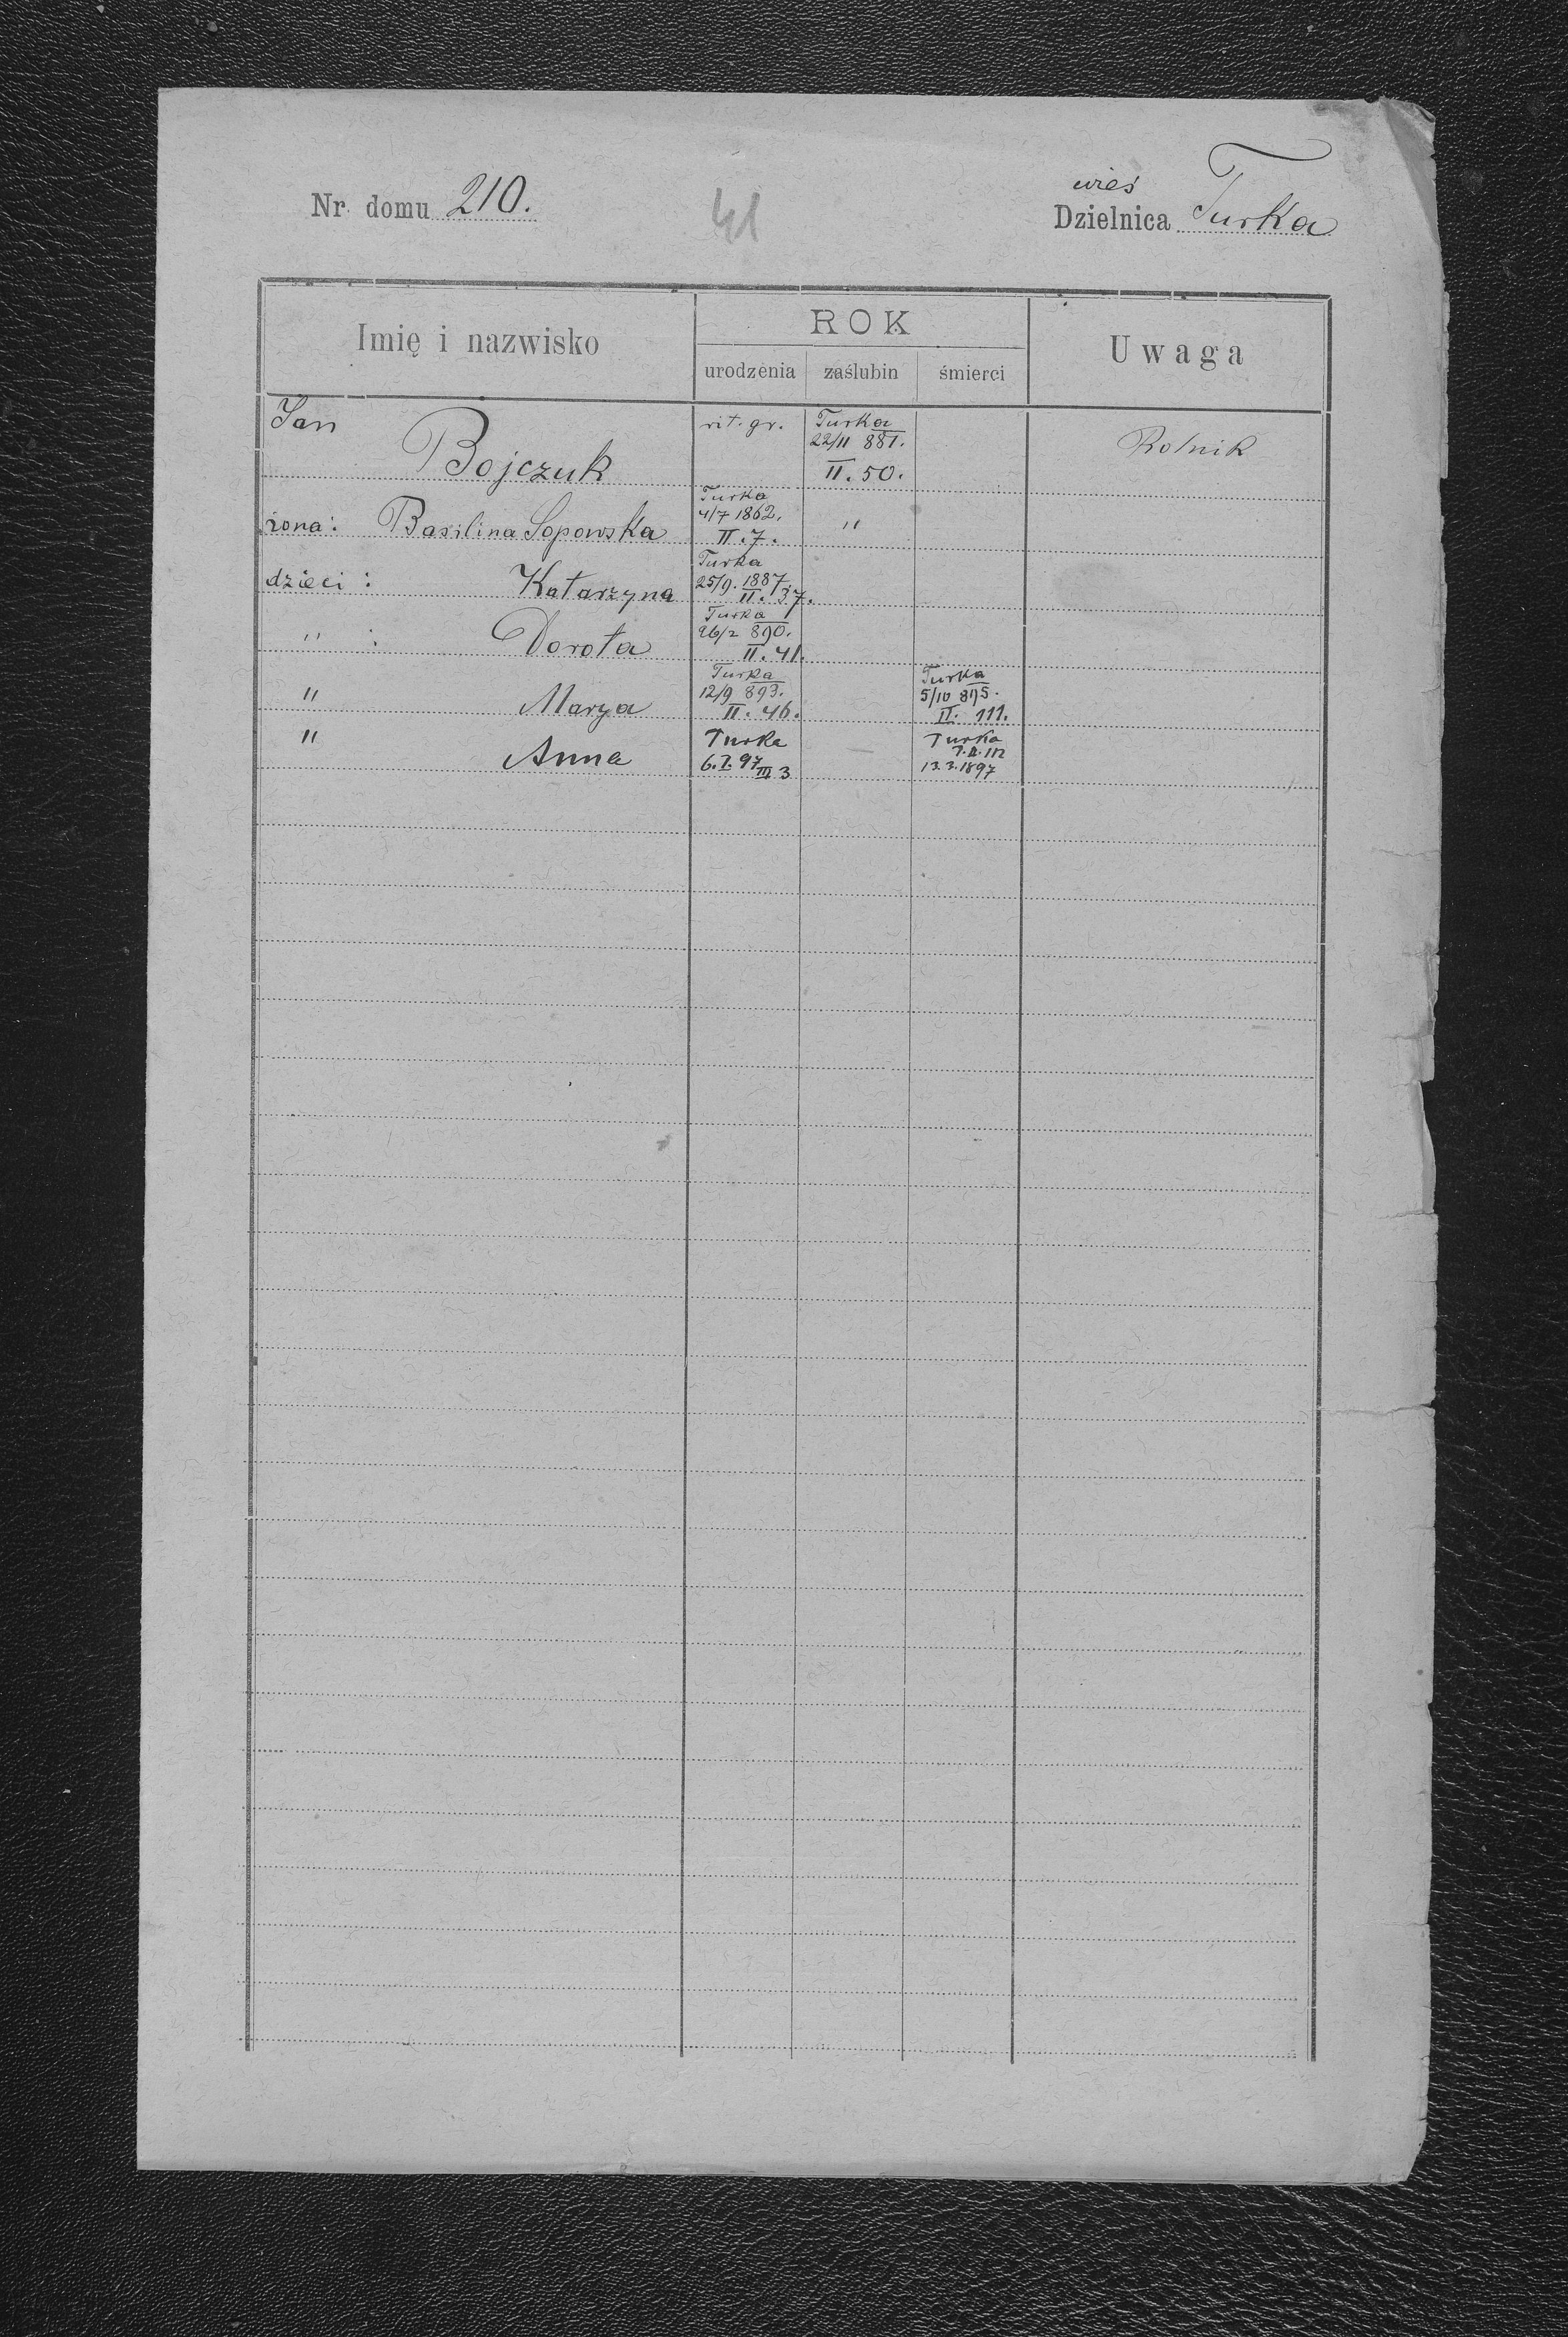 Nr. domu 210.
41
wieś
Dzielnica Turka
Imię i nazwisko
ROK
urodzenia zaślubin śmierci
Uwaga
Jan
Bojczuk
rit. gr.
Turka
22/11 881.
II. 50.
Rolnik
żona: Basilina Sopowska
Turka
4/7 1862.
II. 7.
"
dzieci: Katarzyna
Turka
25/9. 1887.
II. 37.
" : Dorota
Turka
26/2 890.
II. 41.
" Marya
Turka
12/9 893.
II. 46.
Turka
5/10 895.
II. 111.
" Anna
Turka
6.I.97
III 3
Turka
13.3.1897